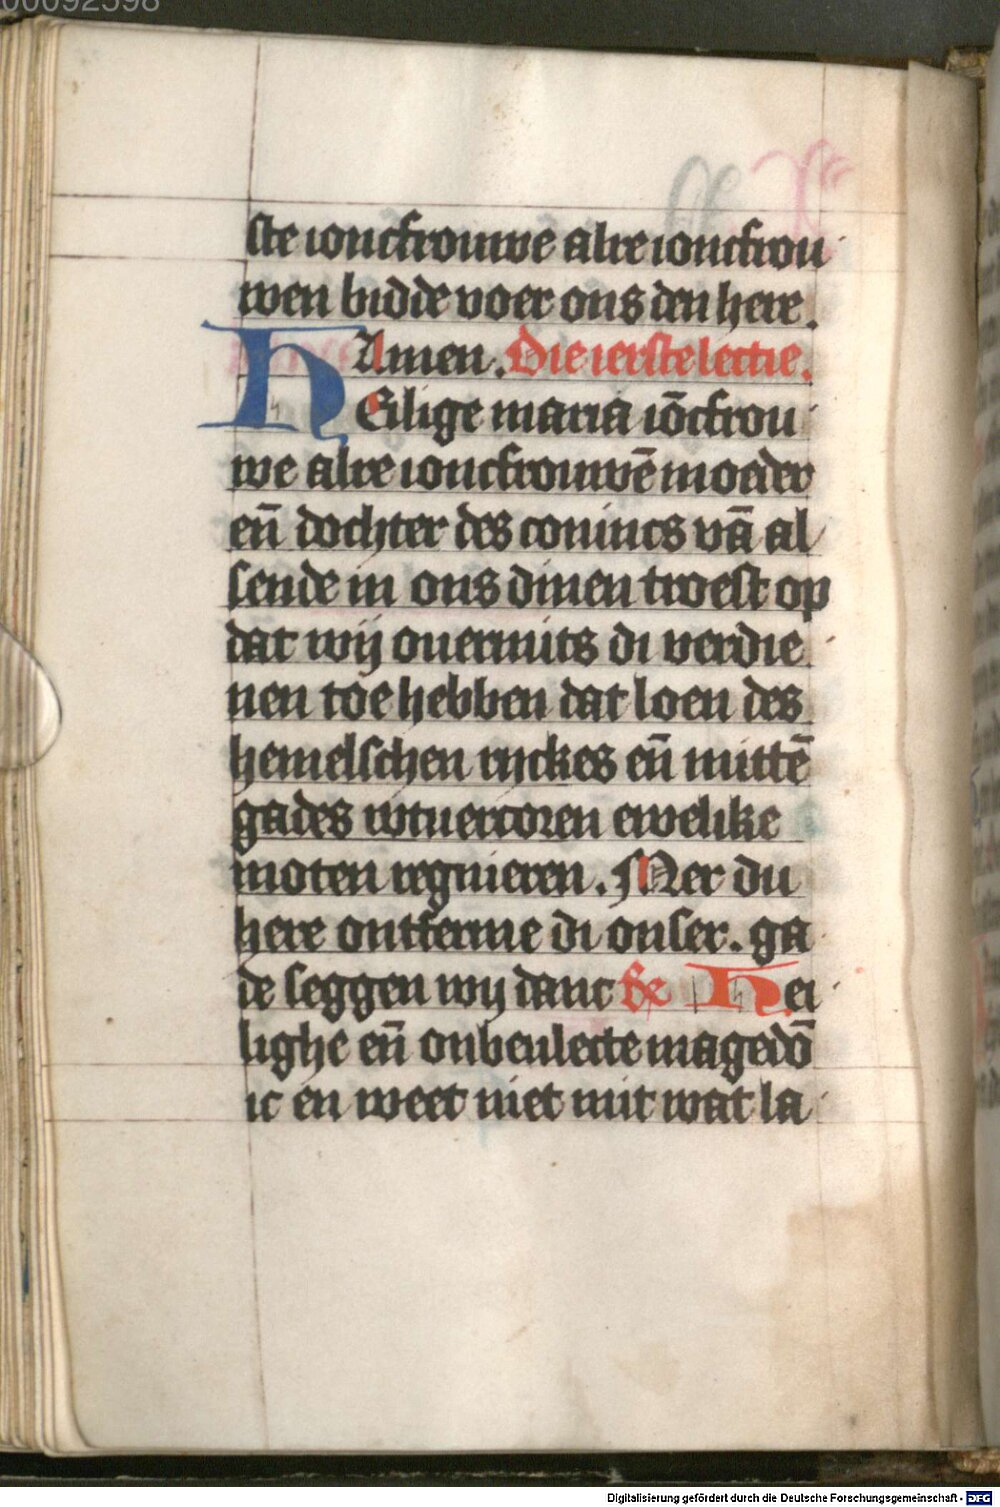 00092598
ste ioncfrouwe alre ioncfrou
wen bidde voer ons den here.
Amen. Die ierste lectie.
HEilige maria iōcfrou
we alre ioncfrouwē moeder
en̄ dochter des conincs vā al
sende in ons dinen troest op
dat wij ouermits di verdie
nen toe hebben dat loen des
hemelschen ryckes en̄ mittē
gades wtuercoren ewelike
moten regnieren. Mer du
here ontferme di onser. ga
de seggen wij danc ℟ Hei
lighe en̄ onbeulecte magedō
ic en weet niet mit wat la
Digitalisierung gefördert durch die Deutsche Forschungsgemeinschaft - DFG